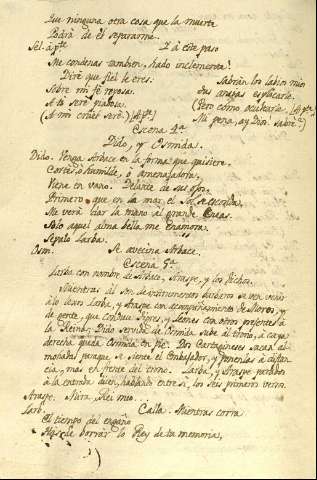 Que ninguna otra cosa que la muerte
Podrá de él separarme.
Sel. á pte. Y á este paso
Me condenas tambien, hado inclemente!
Diré que fiel le eres. Sabrán los labios mios
Sobre mi fe reposa. Sus ansias explicarle.
A tu seré piadosa (Pero cómo ocultarle, [Ap.te
(A mi cruel seré) [Ap.te] Mi pena, ay Dios! sabré?)
Escena 4ª
Dido, y Osmida.
Dido. Venga Arbace en la forma que quisiere,
Cortés ó humilde, ó amenazador,
Viene en vano. Delante de sus ojos,
Primero que en la mar el Sol se esconda,
Me verá dar la mano al grande Eneas.
Solo aquel alma bella me enamora.
Sépalo Iarba.
Osm. Se avecina Arbace.
Escena 5ª
Iarba con nombre de Arbace, Araspe, y los dichos.
Mientras al son de instrumentos barbaros se ven venir
á lo lexos Iarba, y Araspe con acompañamiento de Moros, y
de gente, que conduce Tigres, y Leones con otros presentes á
la Reina; Dido servida de Osmida sube al trono, á cuya
derecha queda Osmida en pie. Dos Cartagineses sacan al-
mohadas paraque se siente el Embajador, y ponenlas á distan-
cia, mas en frente del trono. Iarba, y Araspe parados
á la entrada dicen, hablando entre sí, los seis primeros versos.
Araspe. Mira, Rei mio...
Iarb. Calla. Mientras corra
El tiempo del engaño
Has de borrar lo Rey de tu memoria,